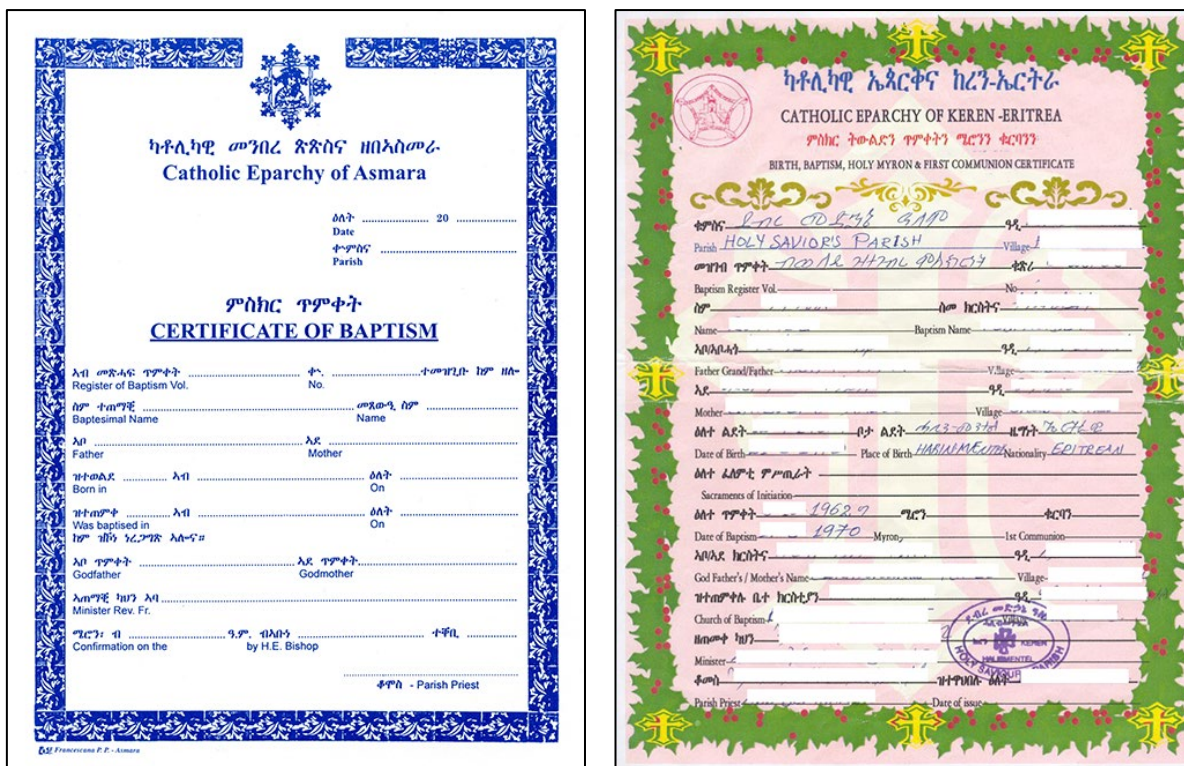 ካቶሊካዊ መንበረ ጵጵስና ዘበአስመራ
Catholic Eparchy of Asmara
ዕለት .................. 20 ..................
Date
ቀኍምስና ..................
Parish
ምስክር ጥምቀት
CERTIFICATE OF BAPTISM
ኣብ መጽሓፍ ጥምቀት .................. ቀኍ. .................. ተመዝጊቡ ከም ዘሎ
Register of Baptism Vol. No.
ስም ተጠማቒ .................. መጸውዒ ስም ..................
Baptesimal Name Name
ኣቦ .................. ኣደ ..................
Father Mother
ዝተወልደ ............ ኣብ .................. ዕለት ............
Born in On
ዝተጠምቀ ............ ኣብ .................. ዕለት ............
Was baptised in On
ከም ዝኾነ ነረጋግጽ ኣሎና።
ኣቦ ጥምቀት .................. ኣደ ጥምቀት ..................
Godfather Godmother
ኣጠማቒ ካህን ኣባ ..................
Minister Rev. Fr.
ሜሮን፡ ብ .................. ዓ.ም. ብኣቡነ .................. ተቐቢ ............
Confirmation on the by H.E. Bishop
ቆሞስ - Parish Priest
Francescana P. P. - Asmara
ካቶሊካዊ ኤጳርቀና ከረን-ኤርትራ
CATHOLIC EPARCHY OF KEREN -ERITREA
ምስክር ትውልድን ጥምቀትን ሜሮንን ቁርባንን
BIRTH, BAPTISM, HOLY MYRON & FIRST COMMUNION CERTIFICATE
ቁምስና ደብረ መድኃኔ ዓለም ዓዲ
Parish HOLY SAVIOR'S PARISH Village
መዝገብ ጥምቀት ቁጽሪ
Baptism Register Vol. No
ስም ስመ ክርስትና
Name Baptism Name
ኣቦ/ኣቦሓጎ ዓዲ
Father Grand/Father Village
ኣደ ዓዲ
Mother Village
ዕለተ ልደት ቦታ ልደት ዜግነት
Date of Birth Place of Birth HALINMENTEL Nationality ERITREAN
ዕለተ ፈለምቲ ምሥጢራት
Sacraments of Initiation
ዕለተ ጥምቀት 1962 ሜሮን ቁርባን
Date of Baptism 1970 Myron 1st Communion
ኣቦ/ኣደ ክርስትና ዓዲ
God Father's / Mother's Name Village
ዝተጠምቀሉ ቤተ ክርስቲያን ዓዲ
Church of Baptism Village
ዘጠመቀ ካህን
Minister
ቆሞስ ዝተዋህበሉ ዕለት
Parish Priest Date of issue
KEREN
HALIBMENTEL
HOLY SAVIOUR PARISH